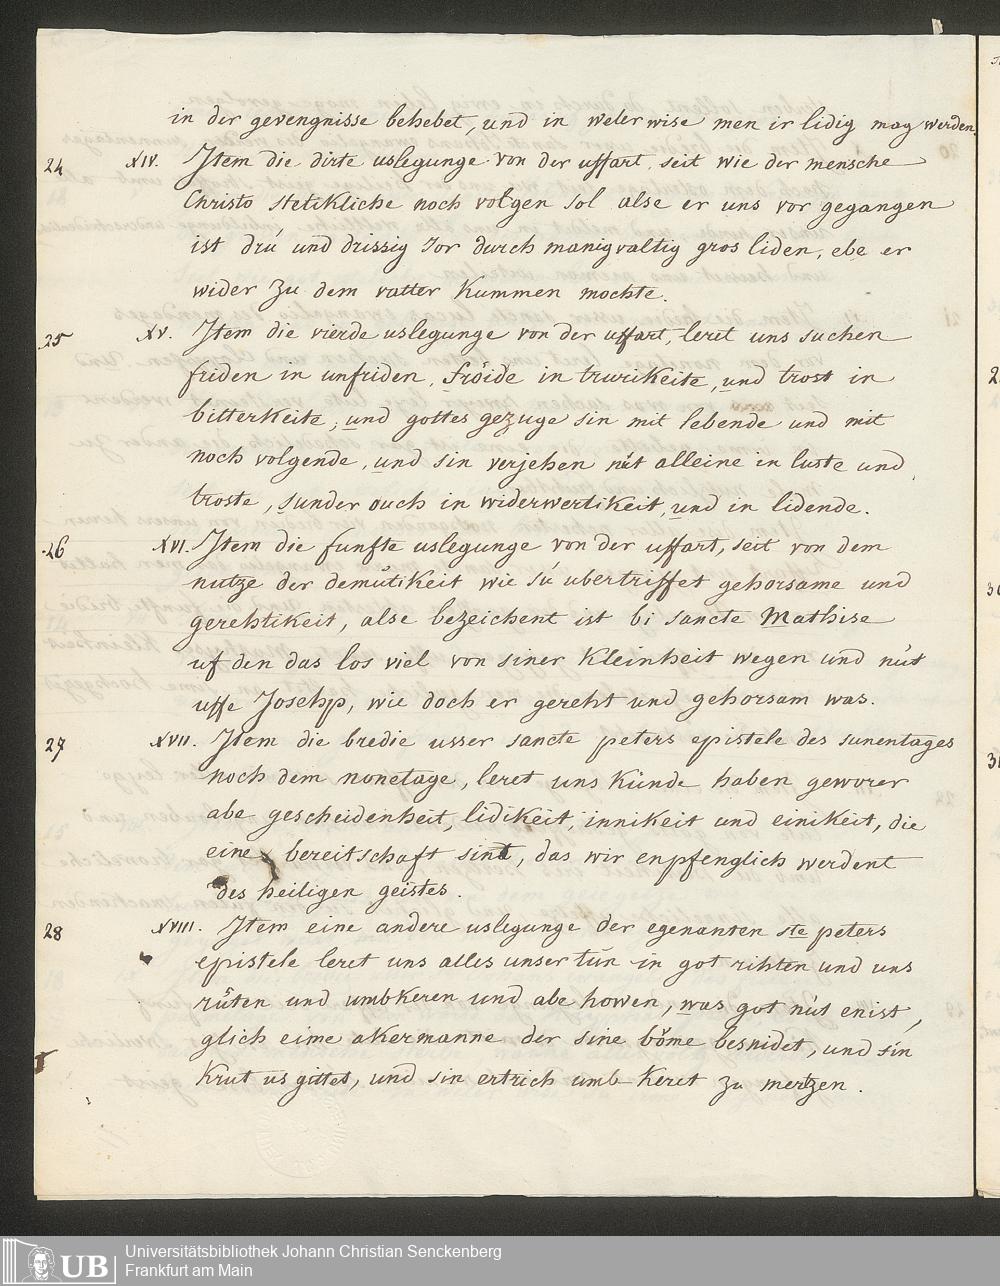 in der gevengnisse behebet, und in weler wise men ir lidig mag werden.
24 XIV. Jtem die dirte uslegunge von der uffart, seit wie der mensche
Christo stetikliche noch volgen sol alse er uns vor gegangen
ist drú und drissig Jor durch manigvaltig gros liden, ebe er
wider zu dem vatter kummen mochte.
25 XV. Jtem die vierde uslegunge von der uffart, leret uns suchen
friden in unfriden, fröide in trurikeite, und trost in
bitterkeite, und gottes gezuge sin mit lebende und mit
noch volgende, und sin verjehen nút alleine in luste und
troste, sunder ouch in widerwertikeit, und in lidende.
26 XVI. Jtem die funfte uslegunge von der uffart, seit von dem
nutze der demütikeit wie sú ubertriffet gehorsame und
gerehtikeit, alse bezeichent ist bi sancte Mathise
uf den das los viel von siner kleinheit wegen und nút
uffe Josehp, wie doch er gereht und gehorsam was.
27 XVII. Jtem die bredie usser sancte peters epistele des sunentages
noch dem nonetage, leret uns künde haben gewarer
abe gescheidenheit, lidikeit, innikeit und einikeit, die
eine bereitschaft sint, das wir enpfenglich werdent
des heiligen geistes.
28 XVIII. Jtem eine andere uslegunge der egenanten ste peters
epistele leret uns alles unser tün in got rihten und uns
rüten und umbkeren und abe howen, was got nút enist,
glich eime akermanne der sine böme besnidet, und sin
krut us gittet, und sin ertrich umb keret zu mertzen.
Universitätsbibliothek Johann Christian Senckenberg
Frankfurt am Main
UB